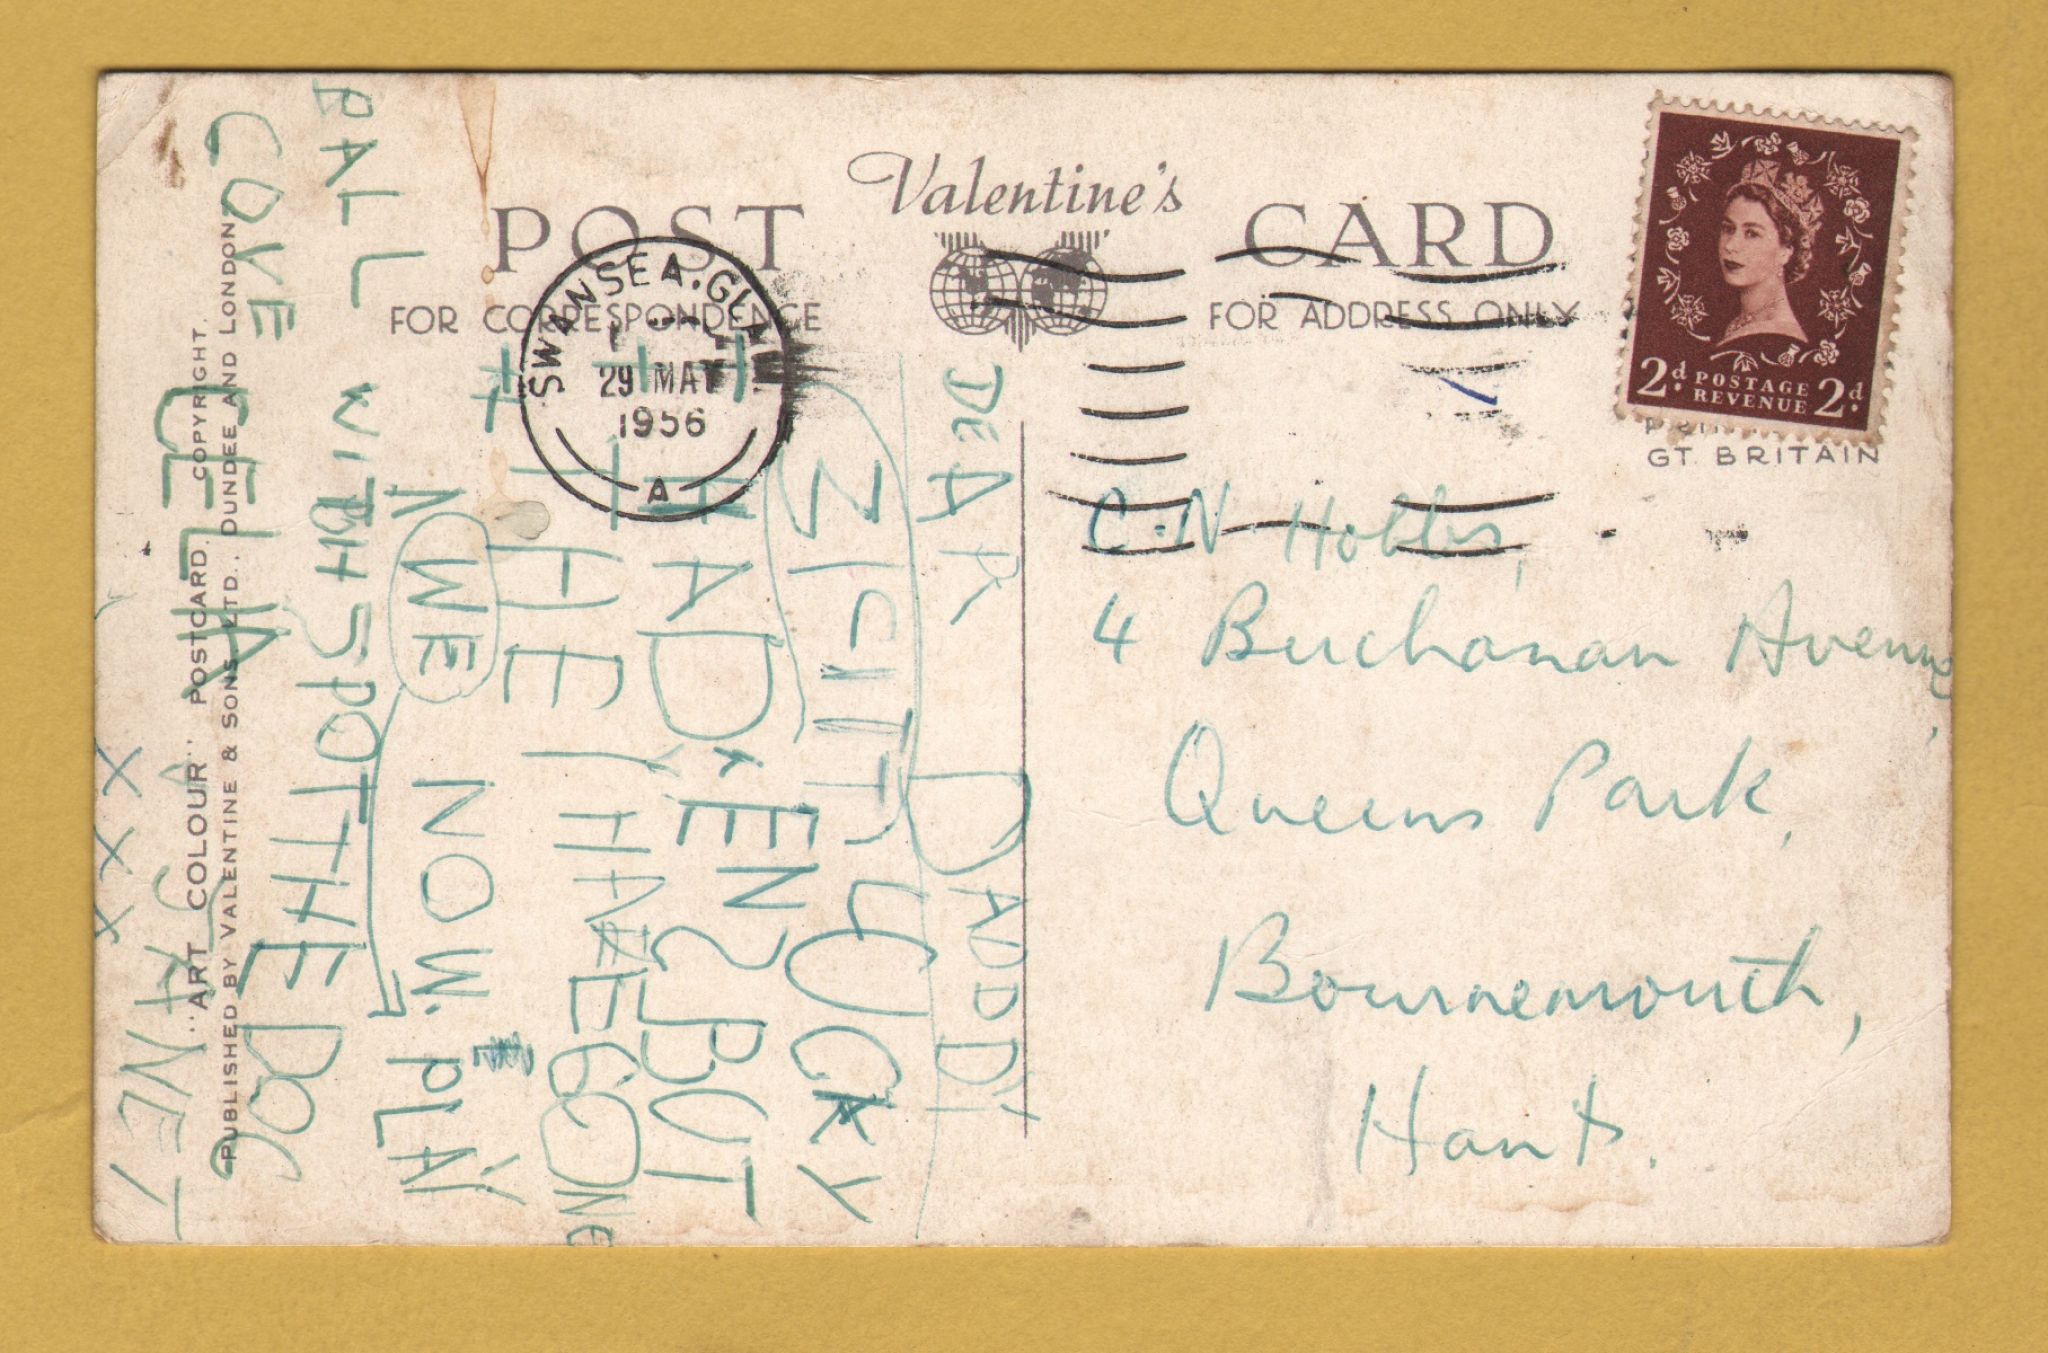 Valentine's
POST CARD
FOR CORRESPONDENCE
FOR ADDRESS ONLY
SWANSEA. GLAM
29 MAY
1956
A
2d. POSTAGE REVENUE 2d.
GT. BRITAIN
DEAR DADDY
HAD
BUT
THEY HAVE GONE
WE NOW. PLAY
BALL WITH SPOT THE DOG
LOVE
CELIA
JANET
X X X
C. N. Hobbs,
4 Buchanan Avenue,
Queens Park,
Bournemouth,
Hants.
"ART COLOUR" POSTCARD. COPYRIGHT.
PUBLISHED BY VALENTINE & SONS, LTD., DUNDEE AND LONDON